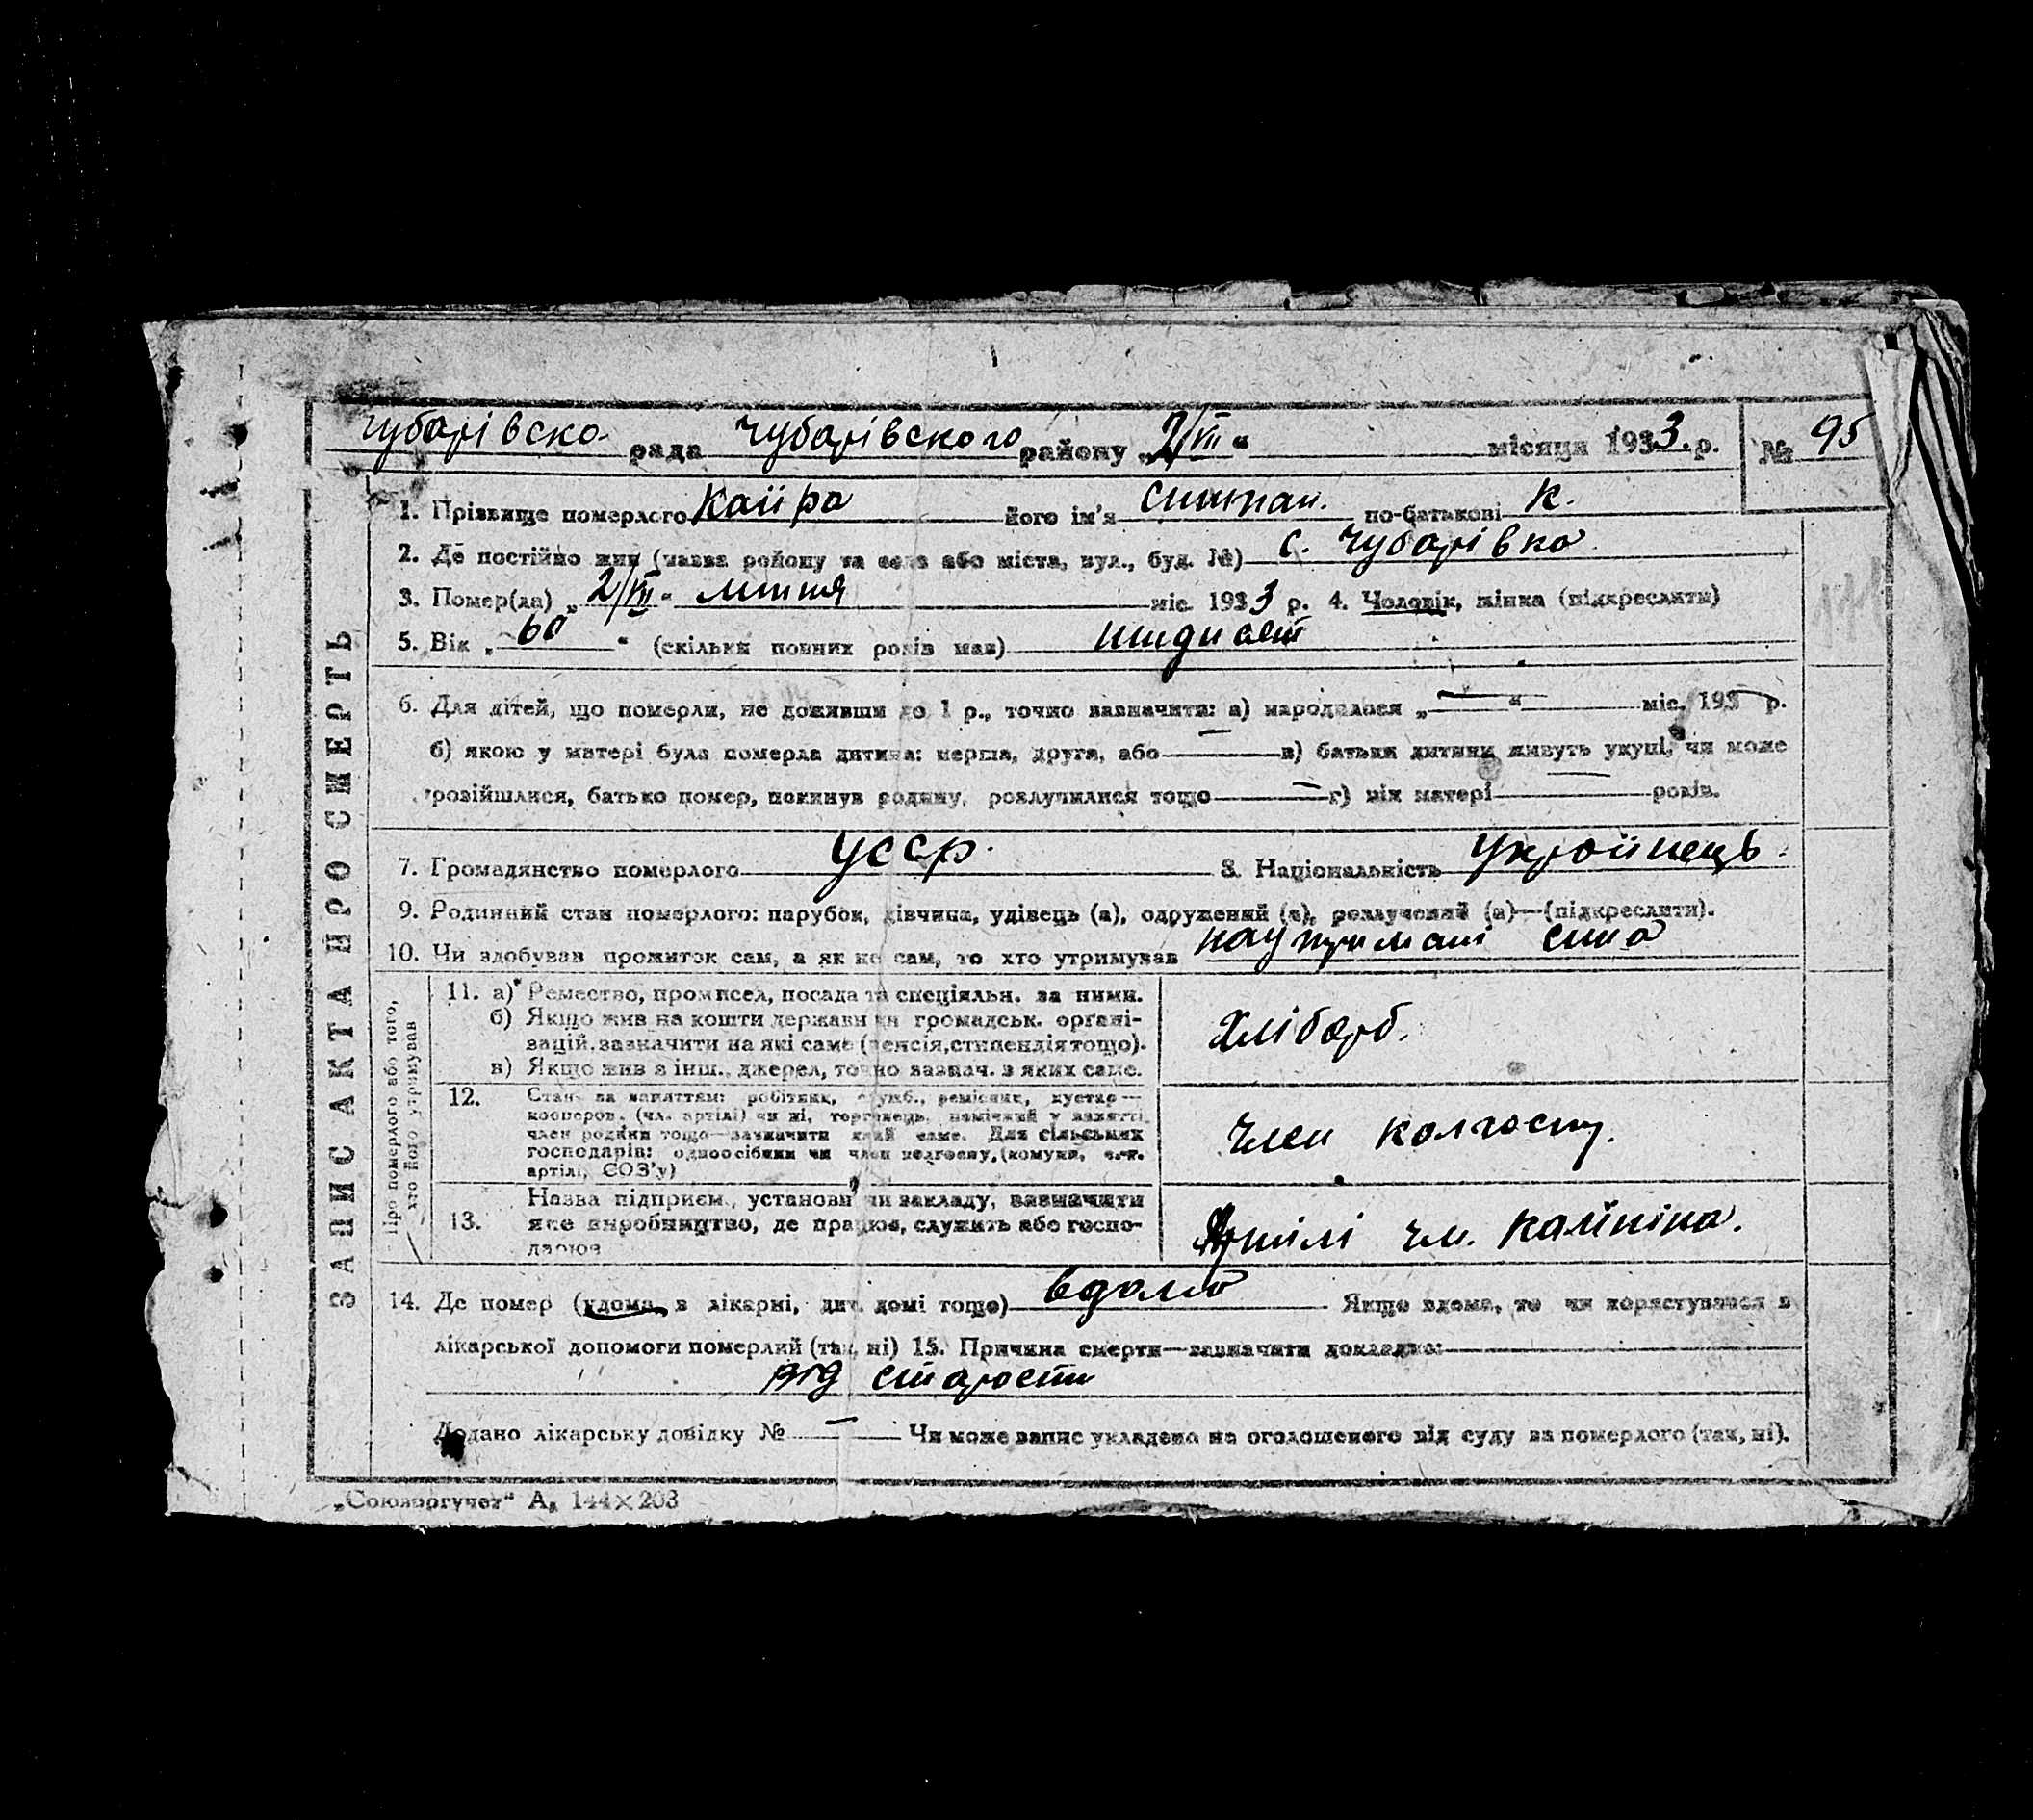 Чубарівско рада Чубарівського району „2/VII“ місяця 1933 р. № 95
1. Прізвище померлого Кайра його ім'я Степан. по-батькові К.
2. Де постійно жив (назва району та села або міста, вул., буд. №) с. Чубарівка
3. Помер(ла) „2/VII“ липня міс. 1933 р. 4. Чоловік, жінка (підкреслити)
5. Вік „60“ (скільки повних років мав)
6. Для дітей, що померли, не доживши до 1 р., точно зазначити: а) народилася „—“ міс. 193 р.
б) якою у матері була померла дитина: перша, друга, або — в) батьки дитини живуть укупі, чи може
розійшлися, батько помер, покинув родину, розлучилися тощо — г) вік матері — років.
7. Громадянство померлого УССР. 8. Національність Українець.
9. Родинний стан померлого: парубок, дівчина, удівець (а), одружений (а), розлучений (а)—(підкреслити).
10. Чи здобував прожиток сам, а як не сам, то хто утримував на утримані сина
ЗАПИС АКТА ПРО СМЕРТЬ
Про померлого або того,
хто його утримував
11. а) Ремество, промисел, посада та спеціяльн. за ними.
б) Якщо жив на кошти держави чи громадськ. органі-
зацій, зазначити на які саме (пенсія, стипендія тощо).
в) Якщо жив з інш., джерел, точно зазнач. з яких саме.
Хлібороб.
12. Стан за заняттям: робітник, служб., ремісник, кустар—
кооперов. (чл. артілі) чи ні, торговець, помічний у занятті
член родини тощо—зазначити який саме. Для сільських
господарів: одноосібник чи член колгоспу, (комуни, с.-г.
артілі, СОЗ'у)
Член колгоспу.
13. Назва підприєм., установи чи закладу, зазначити
яке виробництво, де працює, служить або госпо-
дарює
Артілі чл. Калініна.
14. Де помер (удома, в лікарні, дит. домі тощо) вдома Якщо вдома, то чи користувався в
лікарської допомоги померлий (так, ні) 15. Причина смерти—зазначити докладно:
від старости
Додано лікарську довідку № — Чи може запис укладено на оголошеного від суду за померлого (так, ні).
„Союзоргучет“ А₅ 144×203